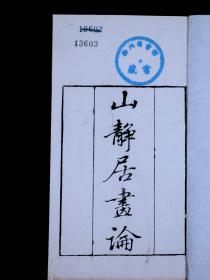 13602
13603
山靜居畫論